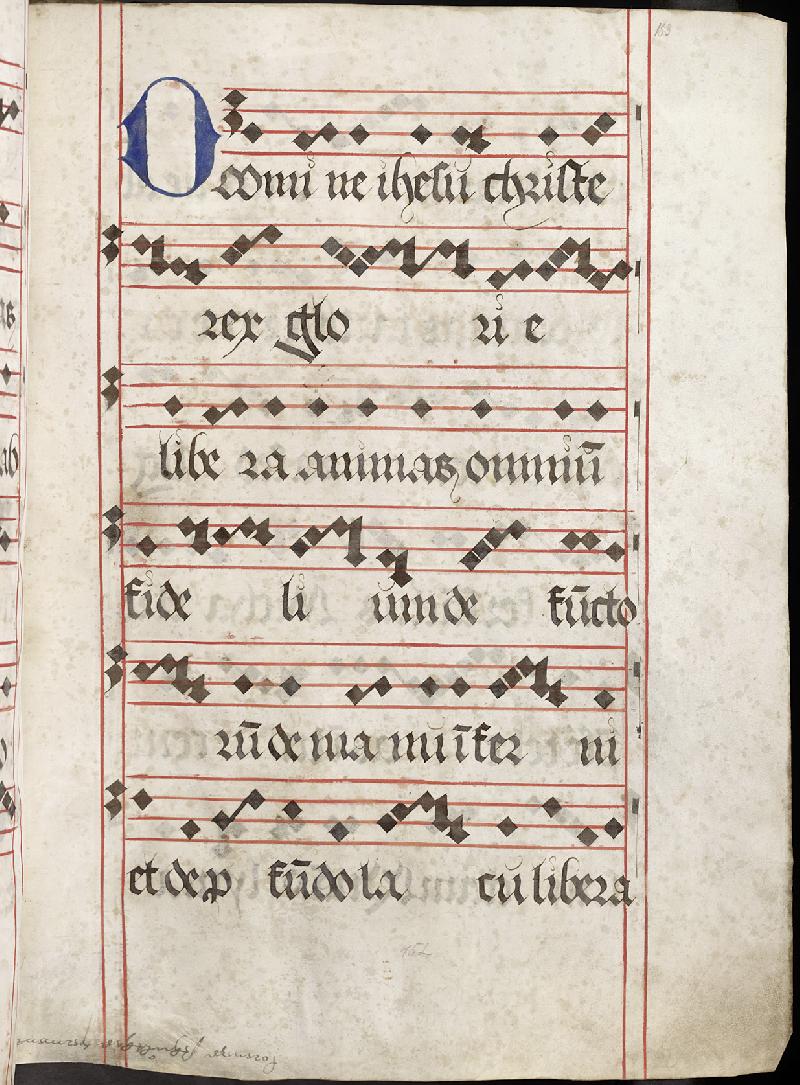 153
Domi ne ihesu christe
rex glo ri e
libe ra animas omniū
fide li um de fūcto
rū de ma nu īfer ni
et de p fūdo la cu libera